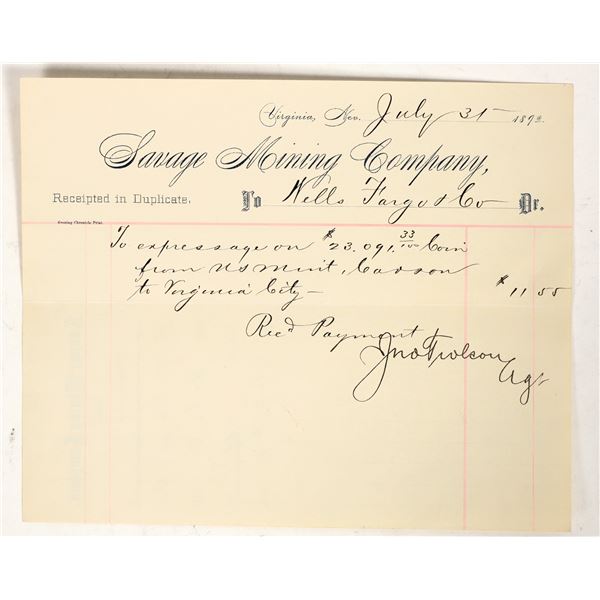 Virginia, Nev. July 31 1892
Savage Mining Company,
Receipted in Duplicate. To Wells Fargo & Co Dr.
Evening Chronicle Print.
To expressage on $23.091.33/100 Coin
from US Mint, Carson
to Virginia City — $11 55
Rec'd Payment
Jno Agt